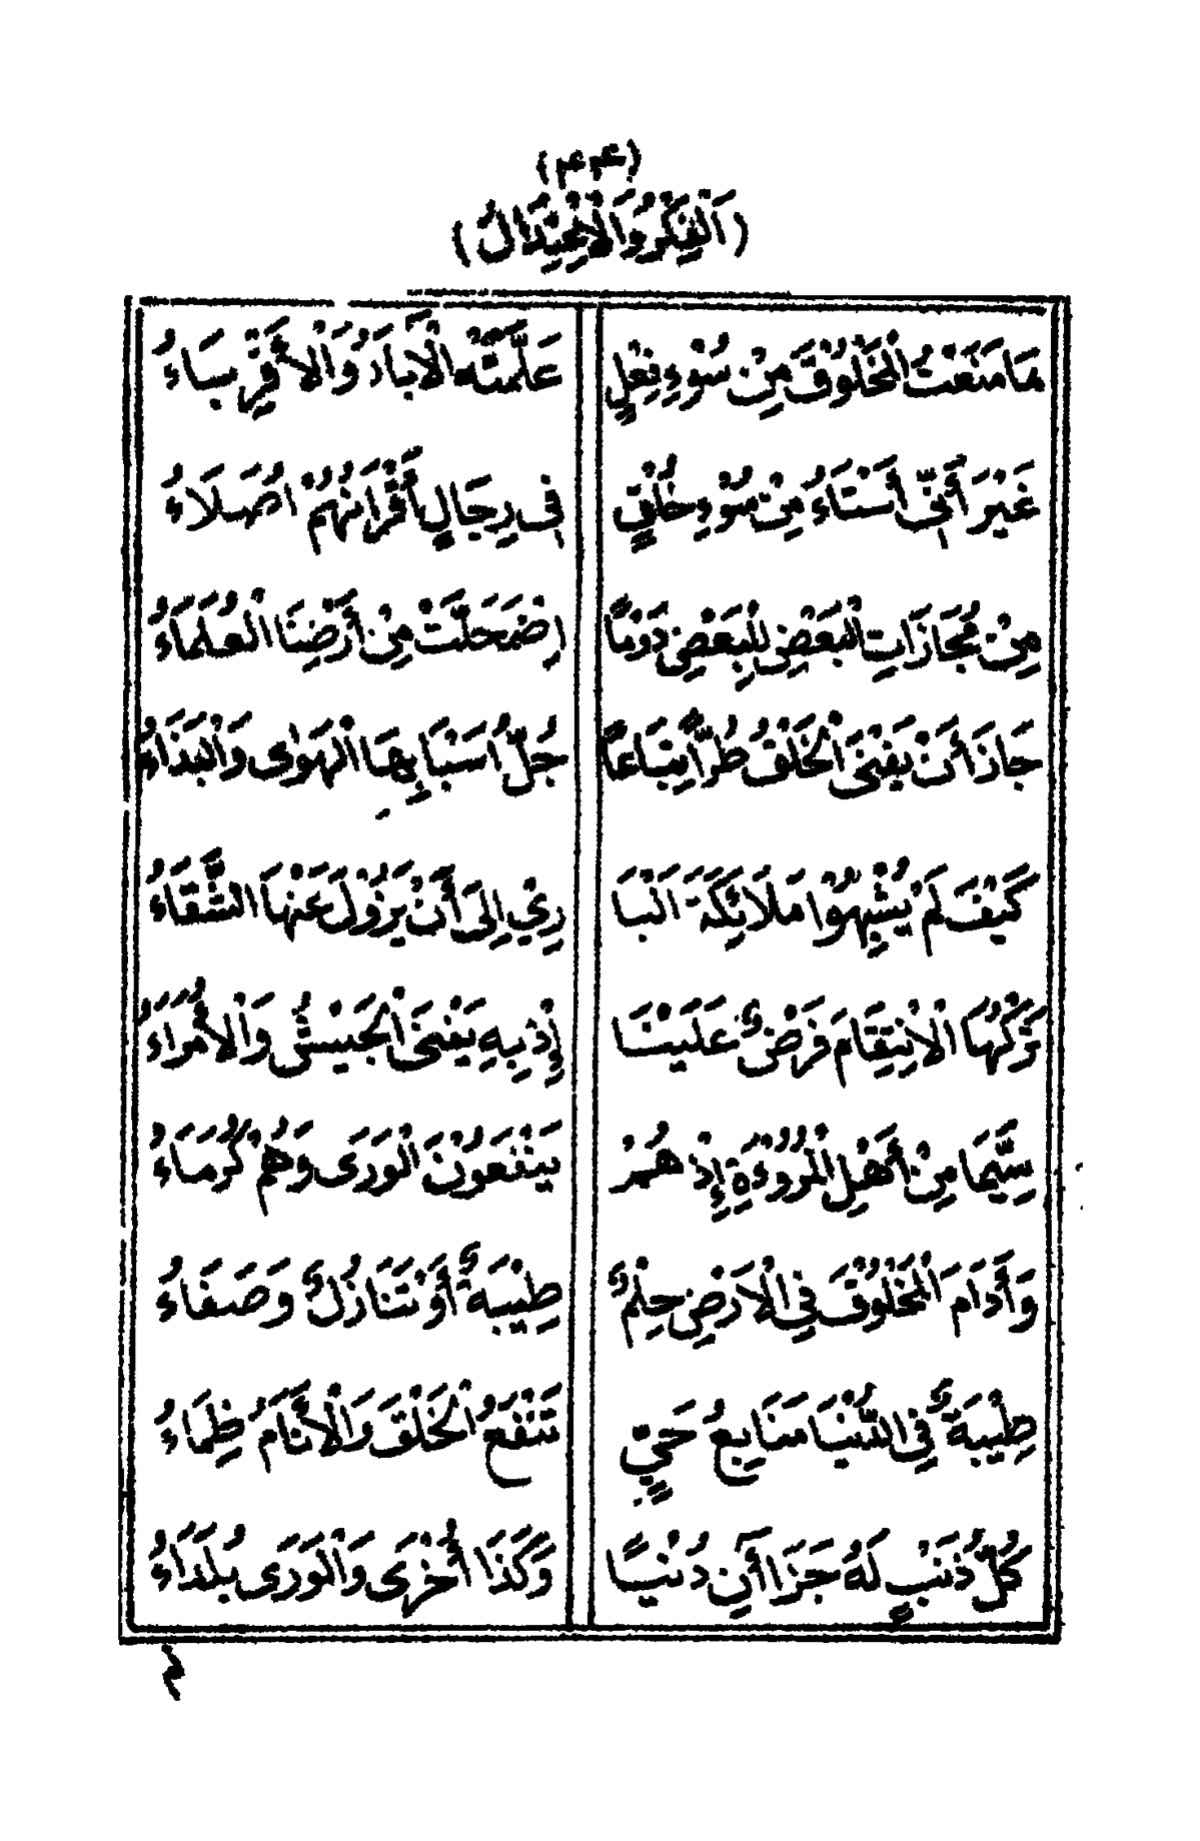 (٤٤)
(اَلْفِكْرُ وَالْاِعْتِدَالُ)
مَا مَنَعْتُ الْمَخْلُوْقَ مِنْ سُوْءِ فِعْلٍ عَلَّمَتْهُ الْآبَاءُ وَالْأَقْرِبَاءُ
غَيْرَ أَنِّى أَسْتَاءُ مِنْ سُوْءِ خُلْقٍ فِى رِجَالٍ أَقْرَانُهُمْ اُصَلَاءُ
مِنْ مُجَازَاتِ الْبَعْضِ لِلْبَعْضِ دَوْمًا اِضْمَحَلَّتْ مِنْ أَرْضِنَا الْعُلَمَاءُ
حَاذَا أَنْ يَفْنَى الْخَلْقُ طُرًّا تِبَاعًا جُلُّ اَسْبَابِهَا الْهَوٰى وَالْبَذَاءُ
كَيْفَ لَمْ يُشْبِهُوْا مَلَائِكَةَ الْبَا رِيْ اِلىَ أَنْ يَزُوْلَ عَنْهَا الشَّقَاءُ
تَرْكُهَا الْاِنْتِقَامَ فَرْضٌ عَلَيْنَا إِذْ بِهِ يَفْنَى الْجَيْشُ وَالْأُمَرَاءُ
سِيَّمَا مِنْ أَهْلِ الْمُرُوْءَةِ إِذْ هُمْ يَنْفَعُوْنَ الْوَرَى وَهُمْ كُرَمَاءُ
وَأَدَامَ الْمَخْلُوْقَ فِى الْاَرْضِ حِلْمٌ طِيْبَةٌ أَوْ تَنَازُلٌ وَصَفَاءُ
طِيْبَةٌ فِى الدُّنْيَا مَنَابِعُ حَيٍّ تَنْفَعُ الْخَلْقَ وَالْأَنَامَ ظِمَاءُ
كُلُّ ذَنْبٍ لَهُ جَزَا آنِ دُنْيًا وَكَذَا أُخْرَى وَالْوَرَى بُلَدَاءُ